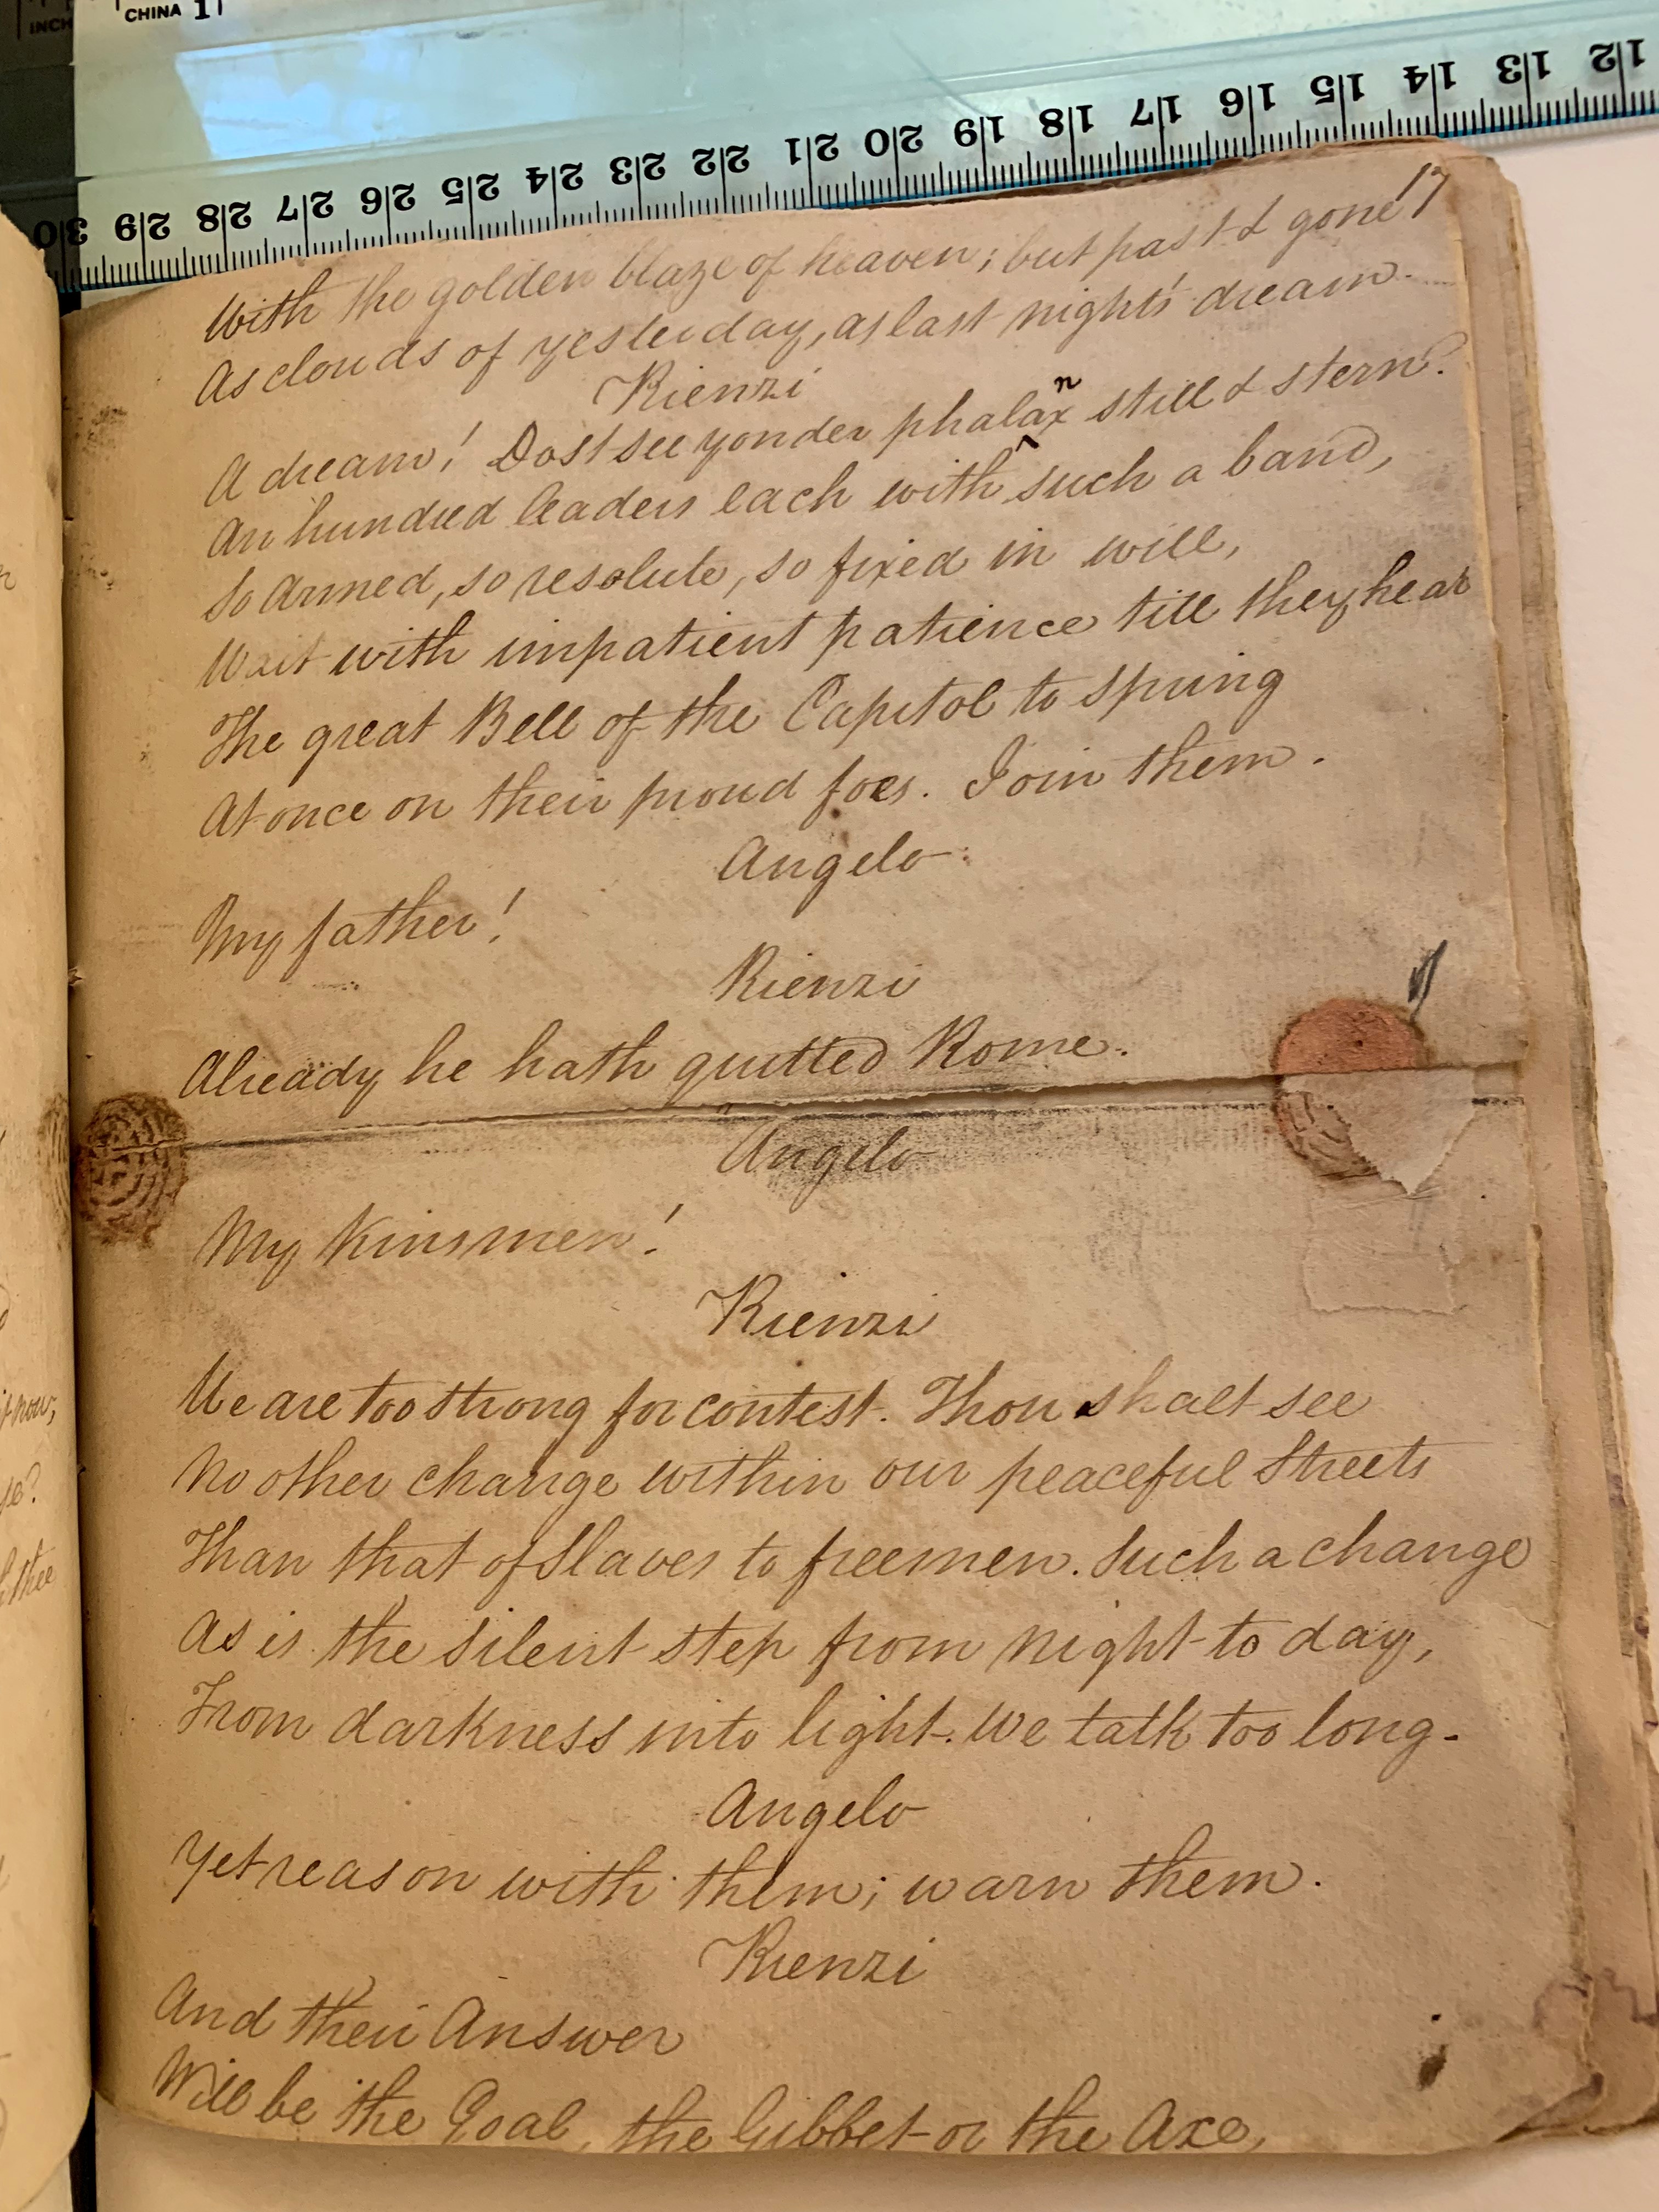 INCH
CHINA 1
30 29 28 27 26 25 24 23 22 21 20 19 18 17 16 15 14 13 12
17
With the golden blaze of heaven; but past & gone
As clouds of yesterday, as last night's dream.
Rienzi
A dream! Dost see yonder phalanx still & stern?
An hundred leaders each with such a band,
So Armed, so resolute, so fixed in will,
Wait with impatient patience till they hear
The great Bell of the Capitol to spring
At once on their proud foes. Join them.
Angelo
My father!
Rienzi
Already he hath quitted Rome.
Angelo
My Kinsmen!
Rienzi
We are too strong for contest. Thou shalt see
No other change within our peaceful Streets
Than that of Slaves to freemen. Such a change
As is the silent step from night to day,
From darkness into light. We talk too long.
Angelo
Yet reason with them; warn them.
Rienzi
And their Answer
Will be the Goal, the Gibbet or the Axe,